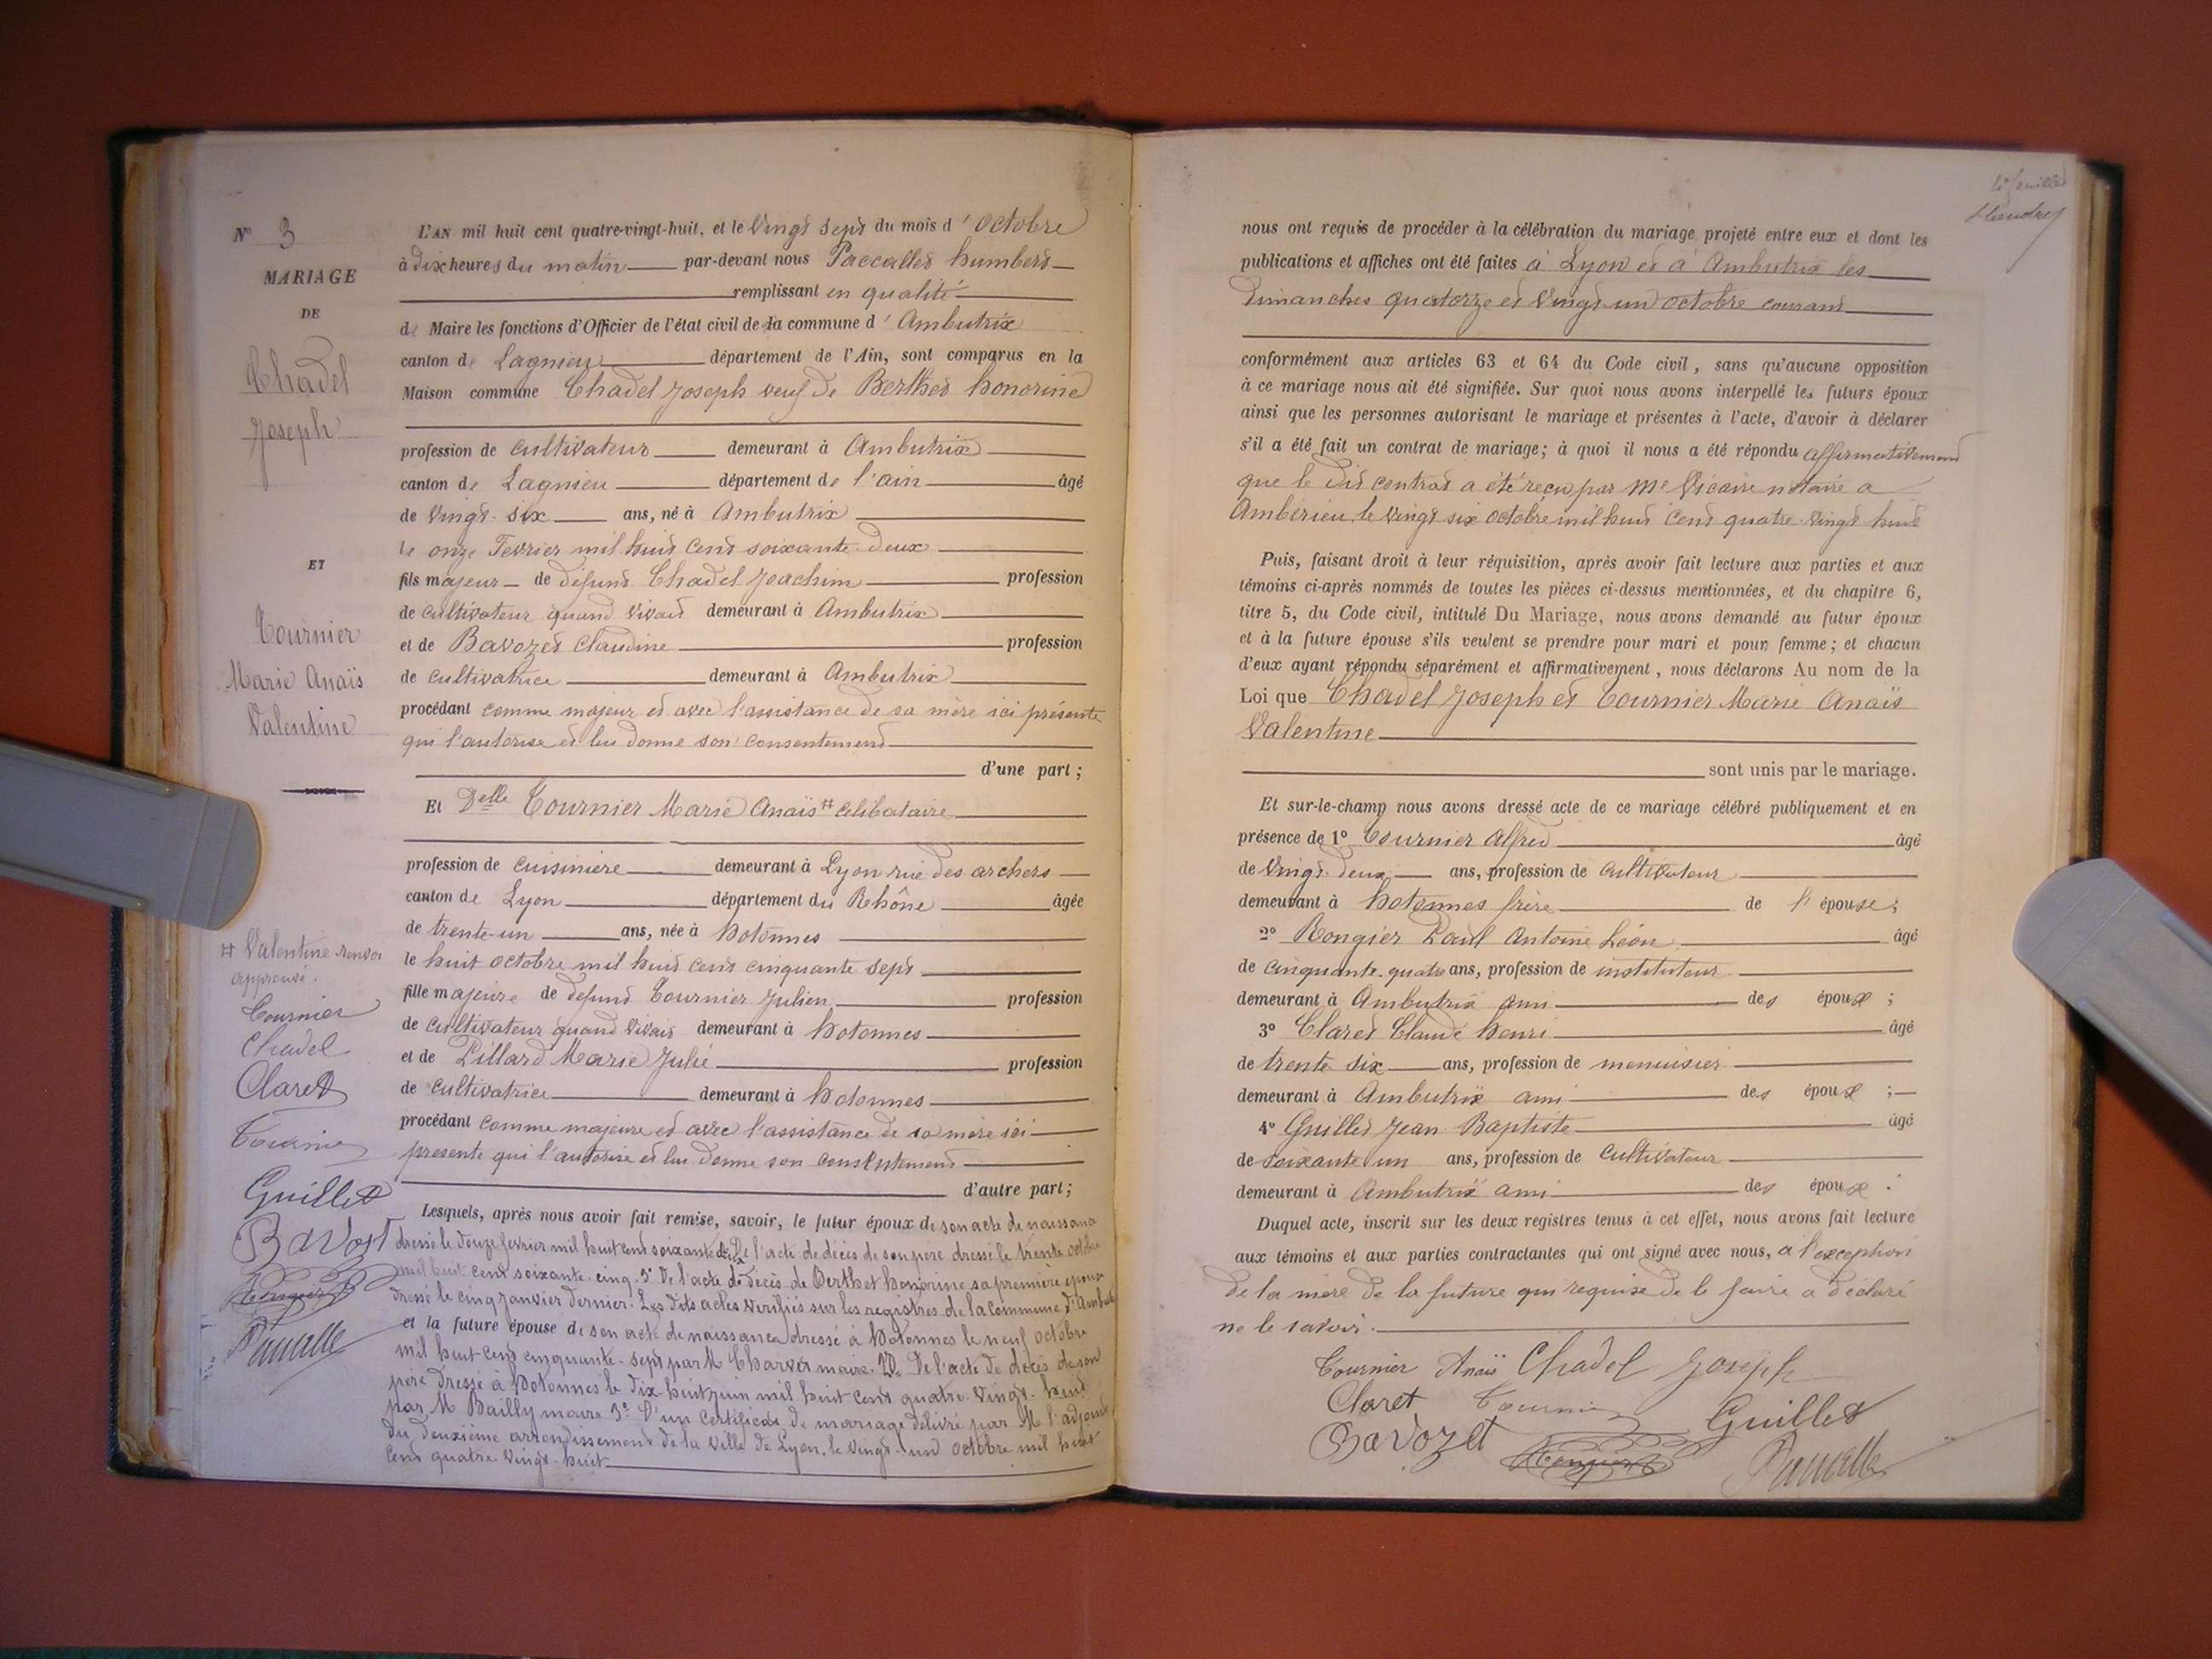 N° 3
MARIAGE
DE
Chadel
Joseph
ET
Tournier
Marie Anaïs
Valentine
# Valentine renvoi
approuvé.
Tournier
Chadel
Claret
Tournier
Guillet
Bavozt
L'AN mil huit cent quatre-vingt-huit, et le Vingt sept du mois d'Octobre
à dix heures du matin par-devant nous Paccallet humbert
remplissant en qualité
de Maire les fonctions d'Officier de l'état civil de la commune d'Ambutrix
canton de Lagnieu département de l'Ain, sont comparus en la
Maison commune Chadel Joseph veuf de Berthet honorine
profession de cultivateur demeurant à Ambutrix
canton de Lagnieu département de l'ain âgé
de Vingt-six ans, né à Ambutrix
le onze Fevrier mil huit cent soixante-deux
fils majeur de défunt Chadel Joachim profession
de cultivateur quand vivait demeurant à Ambutrix
et de Bavozet Claudine profession
de cultivatrice demeurant à Ambutrix
procédant comme majeur et avec l'assistance de sa mère ici présente
qui l'autorise et lui donne son consentement
d'une part ;
Et Delle Tournier Marie Anaïs # celibataire
profession de cuisiniere demeurant à Lyon rue des archers
canton de Lyon département du Rhône âgée
de trente-un ans, née à hotonnes
le huit octobre mil huit cent cinquante sept
fille majeure de defunt Tournier Julien profession
de cultivateur quand vivait demeurant à hotonnes
et de Lillard Marie Julie profession
de cultivatrice demeurant à hotonnes
procédant comme majeure et avec l'assistance de sa mère ici
presente qui l'autorise et lui donne son consentement
d'autre part ;
Lesquels, après nous avoir fait remise, savoir, le futur époux de son acte de naissance
dressé le douze fevrier mil huit cent soixante-deux. De l'acte de décès de son père dressé le trente octobre
mil huit cent soixante-cinq. 3° De l'acte de décès de Berthet honorine sa première épouse
dressé le cinq Janvier dernier. Les dits actes verifiés sur les registres de la commune d'Ambutrix
et la future épouse de son acte de naissance dressé à Hotonnes le neuf octobre
mil huit cent cinquante-sept par M Charvet maire. 2° De l'acte de décès de son
père dressé à hotonnes le dix-huit juin mil huit cent quatre-vingt-huit
par M Bailly maire 3° D'un certificat de mariage délivré par M l'adjoint
du deuxième arrondissement de la ville de Lyon, le vingt-un octobre mil huit
cent quatre-vingt-huit
nous ont requis de procéder à la célébration du mariage projeté entre eux et dont les
publications et affiches ont été faites à Lyon et à Ambutrix les
Dimanches quatorze et Vingt-un octobre courant
conformément aux articles 63 et 64 du Code civil, sans qu'aucune opposition
à ce mariage nous ait été signifiée. Sur quoi nous avons interpellé les futurs époux
ainsi que les personnes autorisant le mariage et présentes à l'acte, d'avoir à déclarer
s'il a été fait un contrat de mariage; à quoi il nous a été répondu affirmativement
que le dit contrat a été reçu par Me Vicaire notaire a
Ambérieu le vingt six octobre mil huit cent quatre-vingt huit
Puis, faisant droit à leur réquisition, après avoir fait lecture aux parties et aux
témoins ci-après nommés de toutes les pièces ci-dessus mentionnées, et du chapitre 6,
titre 5, du Code civil, intitulé Du Mariage, nous avons demandé au futur époux
et à la future épouse s'ils veulent se prendre pour mari et pour femme; et chacun
d'eux ayant répondu séparément et affirmativement, nous déclarons Au nom de la
Loi que Chadel Joseph et Tournier Marie Anaïs
Valentine
sont unis par le mariage.
Et sur-le-champ nous avons dressé acte de ce mariage célébré publiquement et en
présence de 1° Tournier Alfred âgé
de Vingt-deux ans, profession de cultivateur
demeurant à hotonnes frère de l'épouse;
2° Rongier Paul Antoine Léon âgé
de cinquante-quatre ans, profession de instituteur
demeurant à Ambutrix ami des époux ;
3° Claret Claude henri âgé
de trente six ans, profession de menuisier
demeurant à Ambutrix ami des époux ;
4° Guillet Jean Baptiste âgé
de soixante un ans, profession de cultivateur
demeurant à Ambutrix ami des époux :
Duquel acte, inscrit sur les deux registres tenus à cet effet, nous avons fait lecture
aux témoins et aux parties contractantes qui ont signé avec nous, a l'exception
de la mère de la future qui requise de le faire a déclaré
ne le savoir.
Tournier Anaïs Chadel Joseph
Claret Tournier Guillet
Bavozet